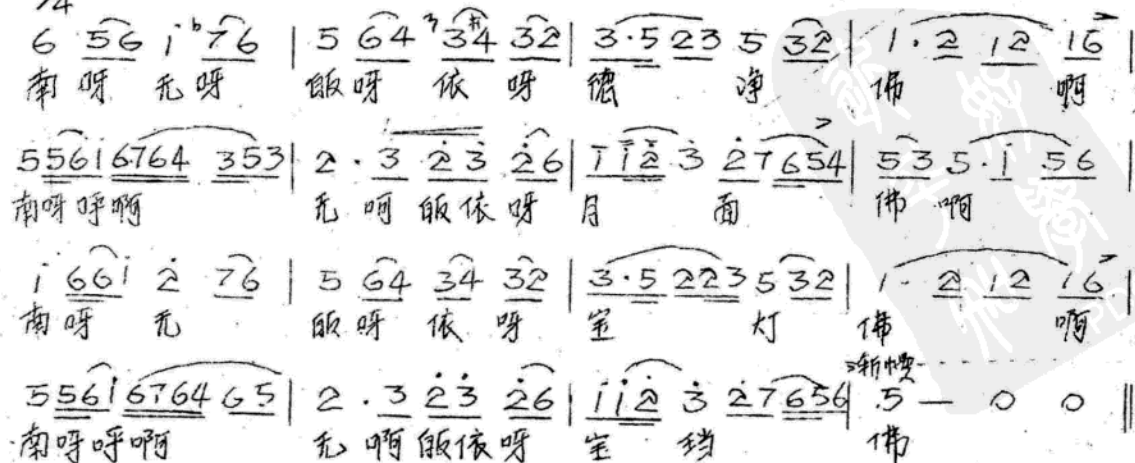 6 56 i ♭76 | 5 64 34 32 | 3·5 23 5 32 | 1·2 12 16
南呀 无呀 皈呀 依呀 德 净 佛 啊
5561 6764 353 | 2·3 2̇3̇ 2̇6 | i i2̇ 3̇ 2̇7 654 | 53 5·i 56
南呀呼啊 无 啊皈依呀 月 面 佛 啊
i 66i 2̇ 76 | 5 64 34 32 | 3·5 223 5 32 | 1·2 12 16
南呀 无 皈呀 依 呀 宝 灯 佛 啊
渐慢
556i 6764 65 | 2·3 2̇3̇ 2̇6 | i i2̇ 3̇ 2̇7 656 | 5 — 0 0 ‖
南呀呼啊 无 啊皈依呀 宝 珰 佛